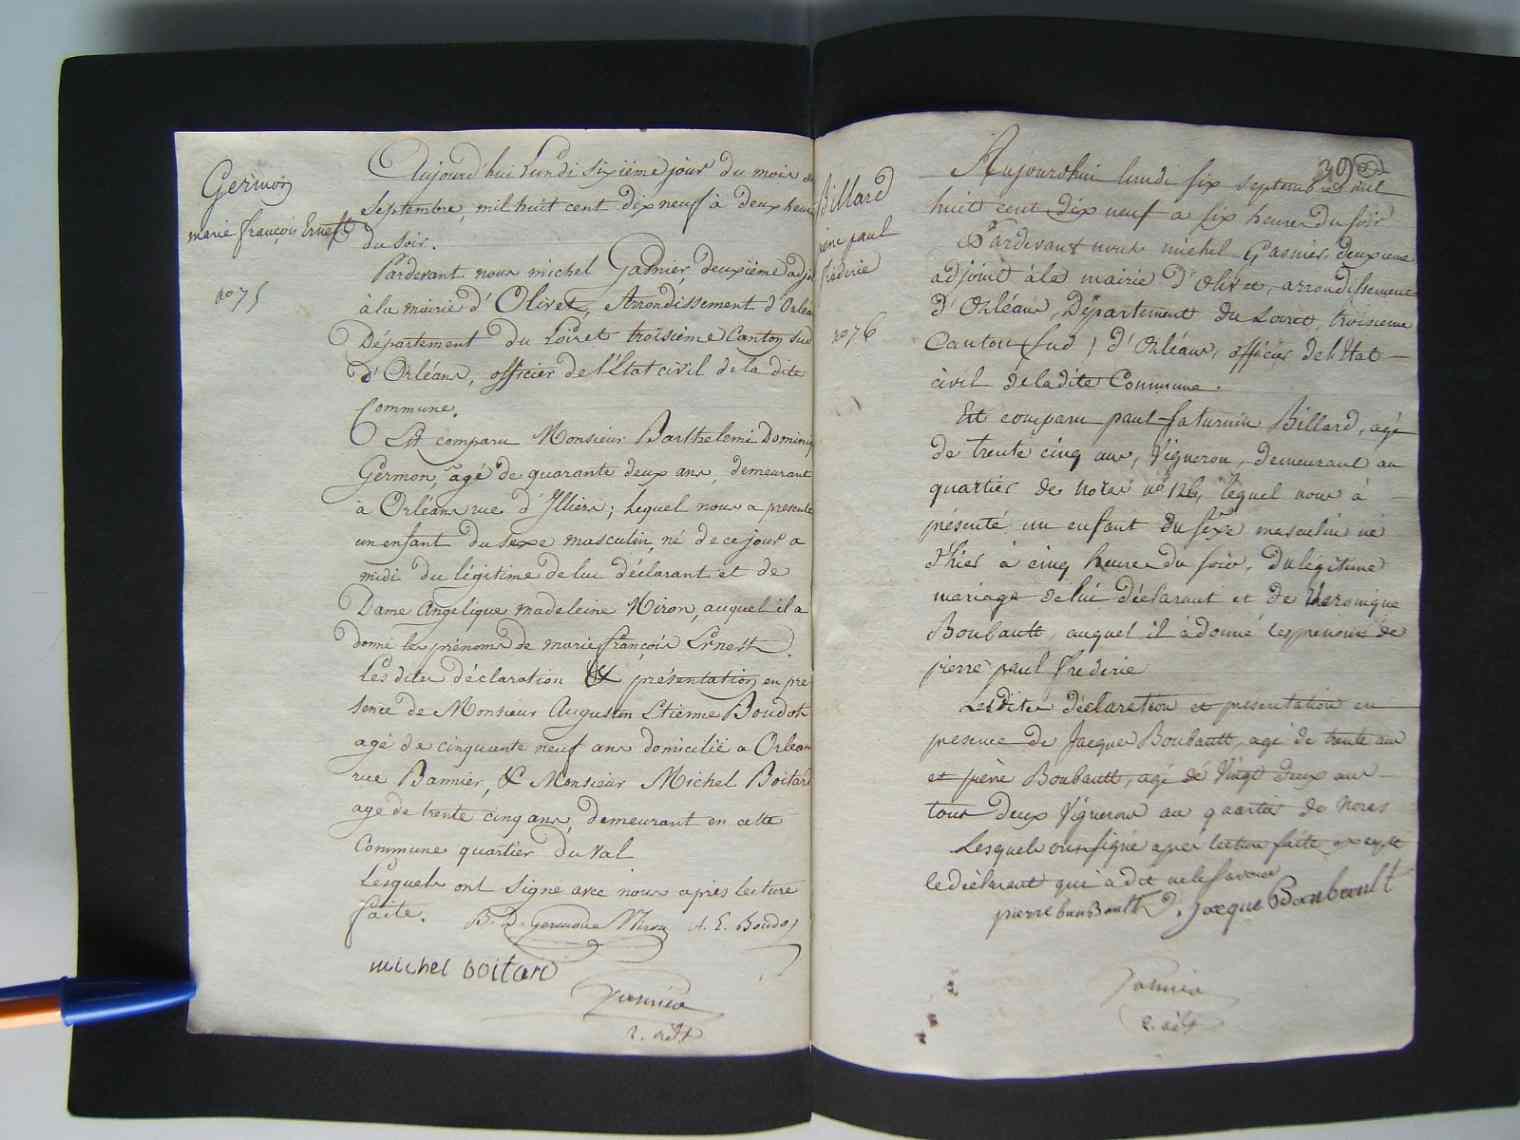 Germon
marie françois Ernest
n° 75
Aujourd'hui Lundi sixième jour du mois de
Septembre, mil huit cent dix neuf à deux heures
du soir.
Pardevant nous michel Gasnier, deuxième adj
à la mairie d'Olivet, Arrondissement d'Orléa
Département du Loiret troisième Canton sud
d'Orléans, officier de l'État civil de la dite
Commune.
Est comparu Monsieur Barthelemi Dominiq
Germon, agé de quarante deux ans, demeurant
à Orléans rue d'Illiers; Lequel nous a presenté
un enfant du sexe masculin, né de ce jour a
midi du légitime de lui déclarant et de
Dame Angelique madeleine Miron, auquel il a
donné les prénoms de marie françois Ernest
Les dites déclaration & présentation en pré
sence de Monsieur Augustin Etienne Boudot
agé de cinquante neuf ans domicilié a Orléan
rue Bannier, & Monsieur Michel Boitard
age de trente cinq ans, demeurant en cette
Commune quartier du Val
Lesquels ont signé avec nous après lecture
faite.
B. D. Germon Miron A. E. Boudot
michel boitard
Gasnier
2. adjt
30
Billard
paul
fréderic
n° 76
Aujourdhui lundi six septembre mil
huit cent dix neuf a six heures du soir
Pardevant nous michel Gasnier, deuxieme
adjoint à la mairie d'Olivet, arrondissement
d'Orléans, Département du Loiret, troisieme
Canton (sud) d'Orléans, officier de l'état
civil de la dite Commune.
Est comparu paul saturnin Billard, agé
de trente cinq ans, Vigneron, demeurant au
quartier de Noras n° 126, lequel nous à
présenté un enfant du sexe masculin né
d'hier à cinq heures du soir, du légitime
mariage de lui déclarant et de Veronique
Boubault, auquel il à donné les prenoms de
pierre paul frederic
Lesdites déclaration et présentation en
presence de Jacques Boubault, agé de trente ans
et pierre Boubault, agé de Vingt deux ans
tous deux Vignerons au quartier de Noras
Lesquels ont signé apres lecture faite excepté
le déclarant qui à dit ne le savoir
pierre bouBault J. jacque Boubault
Gasnier
2. adjt